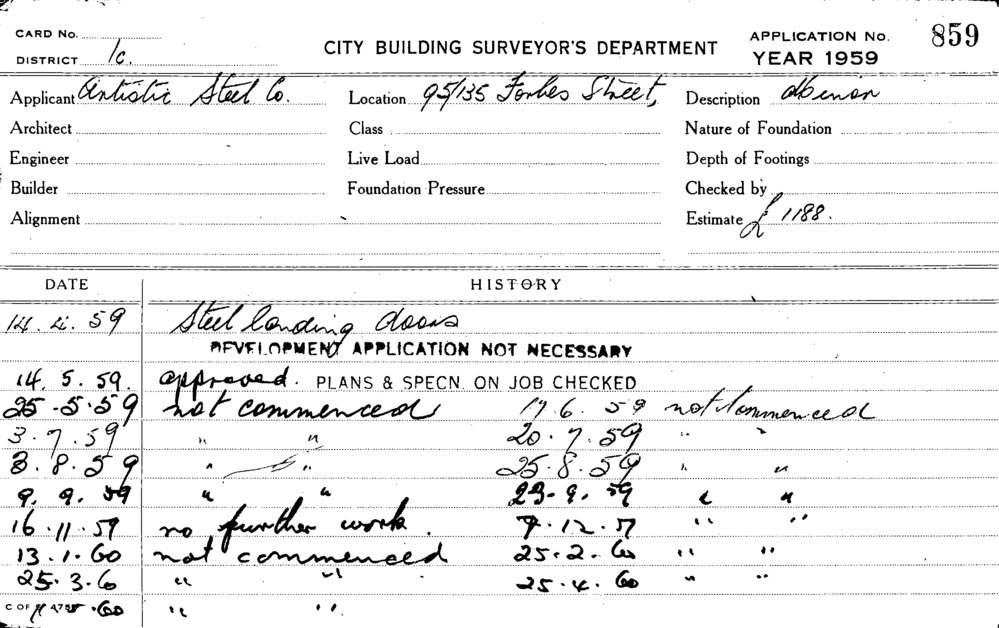 CARD No.
DISTRICT 1c.
CITY BUILDING SURVEYOR'S DEPARTMENT
APPLICATION No. 859
YEAR 1959
Applicant Artistic Steel Co. Location 95/135 Forbes Street, Description
Architect Class Nature of Foundation
Engineer Live Load Depth of Footings
Builder Foundation Pressure Checked by
Alignment Estimate £ 1188.
DATE HISTORY
14. 4. 59 Steel landing doors
DEVELOPMENT APPLICATION NOT NECESSARY
14. 5. 59. approved. PLANS & SPECN. ON JOB CHECKED
25 . 5 . 59 not commenced 17 6. 59 not commenced
3. 7. 59 " " 20. 7. 59 " "
3. 8. 59 " " 25. 8. 59 " "
9. 9. 59 " " 23. 9. 59 " "
16. 11. 59 no further work. 7. 12. 59 " "
13. 1. 60 not commenced 25. 2. 60 " "
25. 3. 60 " " 25. 4. 60 " "
C OF 5. 60 " "